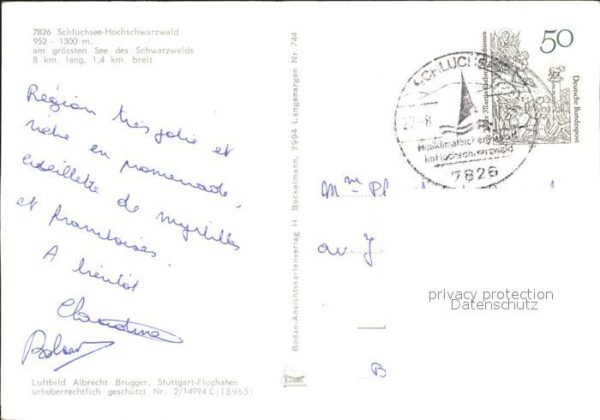 7826 Schluchsee-Hochschwarzwald
952 - 1300 m.
am grössten See des Schwarzwalds
8 km. lang, 1,4 km. breit
Région très jolie et
riche en promenade,
cueillette de myrtilles
et framboises
A bientôt
Claudine
Luftbild Albrecht Brugger, Stuttgart-Flughafen
urheberrechtlich geschützt Nr. 2/14994 C (18965)
Bodan-Ansichtskartenverlag H. Bockelmann, 7994 Langenargen Nr. 744
50
Deutsche Bundespost
SCHLUCHSEE
Heilklimatischer
im Hochschwarzwald
7826
Mme
av J
B
privacy protection
Datenschutz